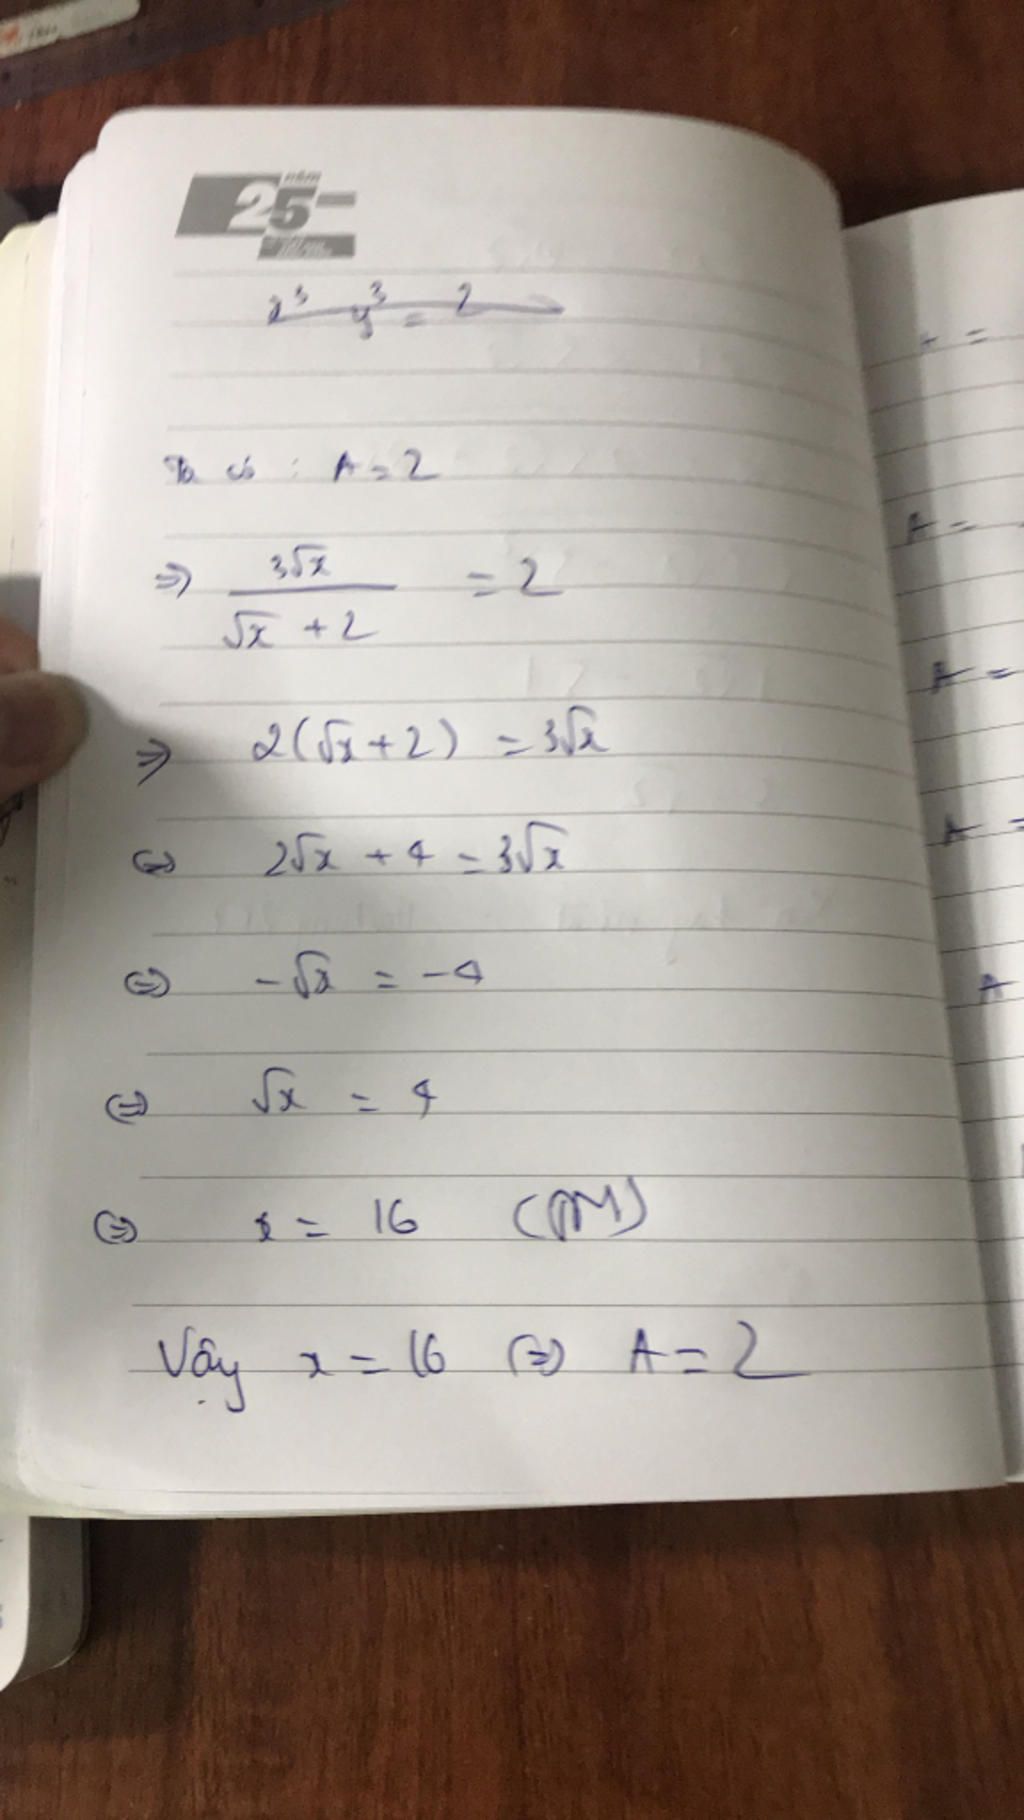 năm
25
x³ y³ = 2
Ta có : A = 2
⇒ 3√x / (√x + 2) = 2
⇒ 2(√x + 2) = 3√x
⇔ 2√x + 4 = 3√x
⇔ -√x = -4
⇔ √x = 4
⇔ x = 16 (TM)
Vậy x = 16 ⇔ A = 2
+ =
A =
A =
A =
A